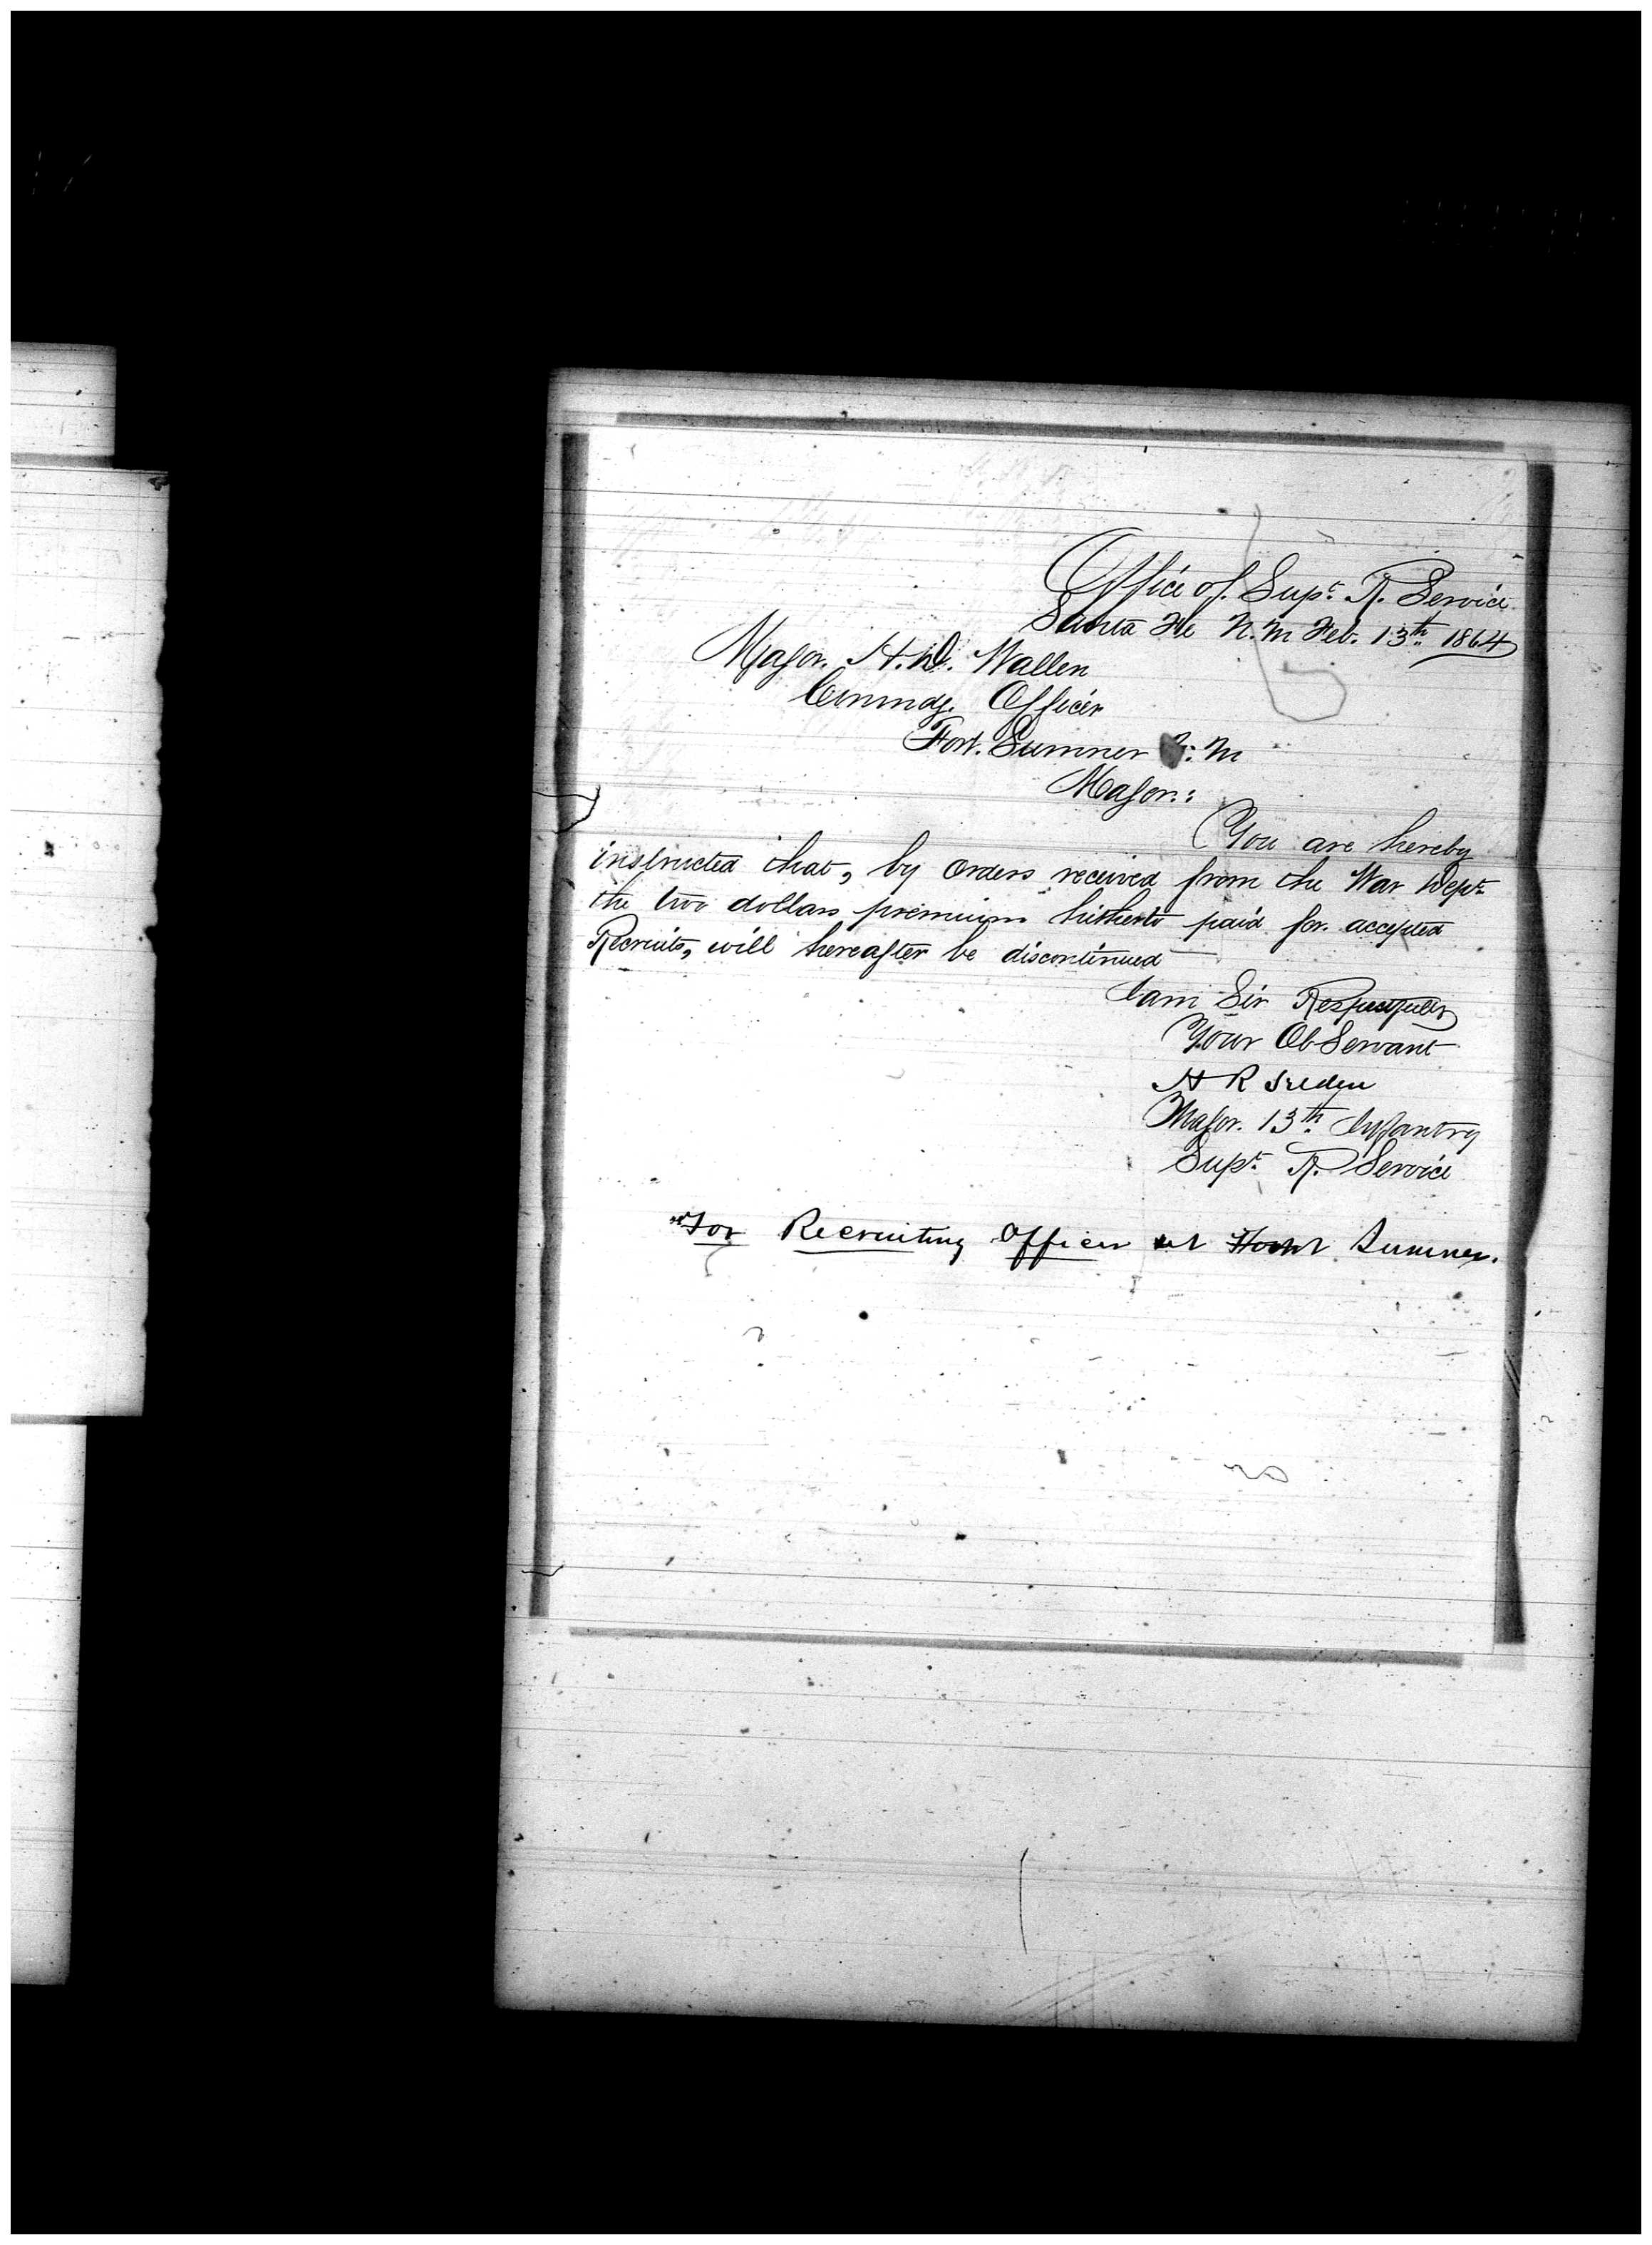 Office of Supt. R. Service
Santa Fe N. M Feb. 13th 1864
Major. H. D. Wallen
Commdg. Officer
Fort. Sumner N. M
Major.:
You are hereby
instructed that, by orders received from the War Dept.
the two dollars premium hitherto paid for accepted
Recruits, will hereafter be discontinued
I am Sir Respectfully
Your Ob Servant
H R Selden
Major. 13th Infantry
Supt. R. Service
"For Recruiting Officer at Fort Sumner.